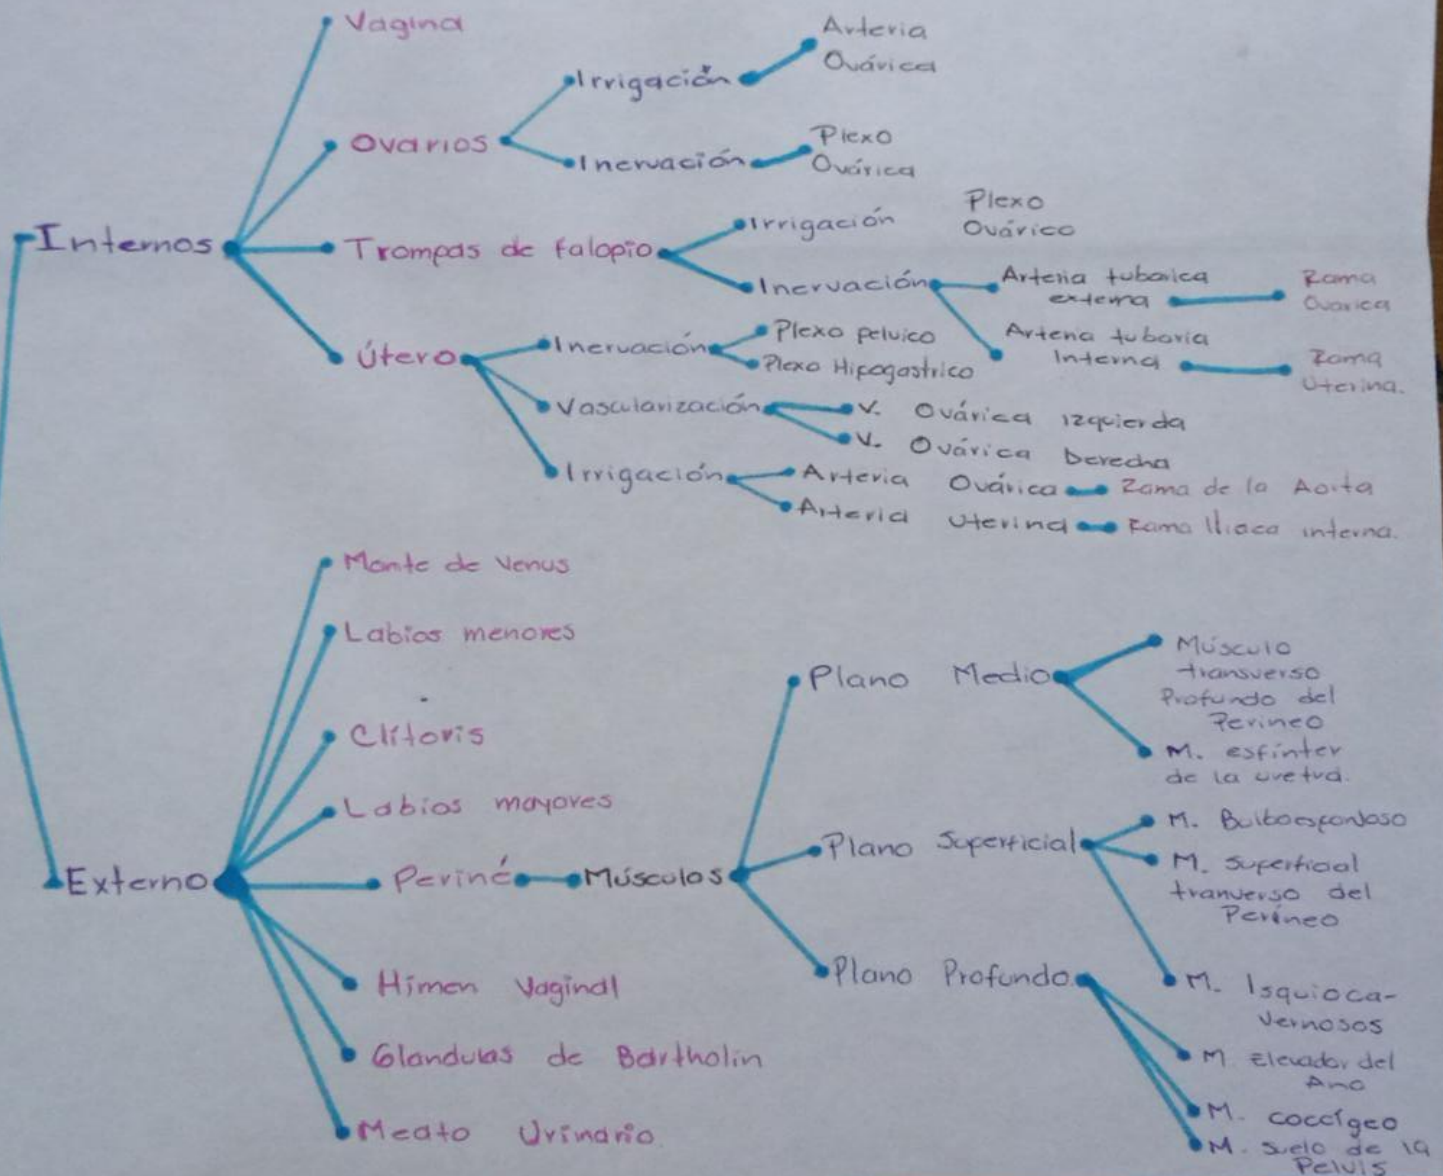 Vagina
Arteria
Ovárica
Irrigación
Ovarios
Plexo
Ovárica
Inervación
Internos
Plexo
Ovárico
Irrigación
Trompas de falopio
Inervación
Arteria tubarica
externa
Rama
Ovarica
Arteria tubaria
Interna
Rama
Uterina.
Útero
Inervación
Plexo pelvico
Plexo Hipogastrico
Vascularización
V. Ovárica izquierda
V. Ovárica Derecha
Irrigación
Arteria Ovárica
Rama de la Aorta
Arteria Uterina
Rama Iliaca interna.
Monte de Venus
Labios menores
Clítoris
Labios mayores
Externo
Periné
Músculos
Plano Medio
Músculo
transverso
Profundo del
Perineo
M. esfinter
de la uretra.
Plano Superficial
M. Bulboesponjoso
M. superficial
tranverso del
Perineo
M. Isquioca-
vernosos
Plano Profundo
M. Elevador del
Ano
M. coccígeo
M. suelo de la
Pelvis
Himen Vaginal
Glandulas de Bartholin
Meato Urinario.